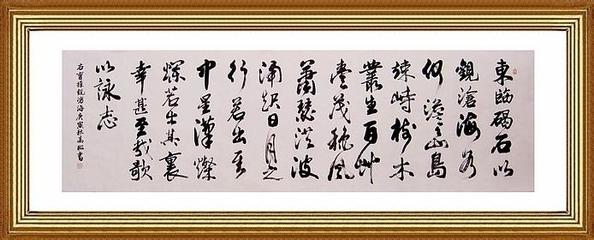 東臨碣石以
觀滄海水
何澹澹山島
竦峙樹木
叢生百艸
豊茂秋風
蕭瑟洪波
涌起日月之
行若出其
中星漢燦
爛若出其裏
幸甚至哉歌
以詠志
右曹操觀滄海庚寅書